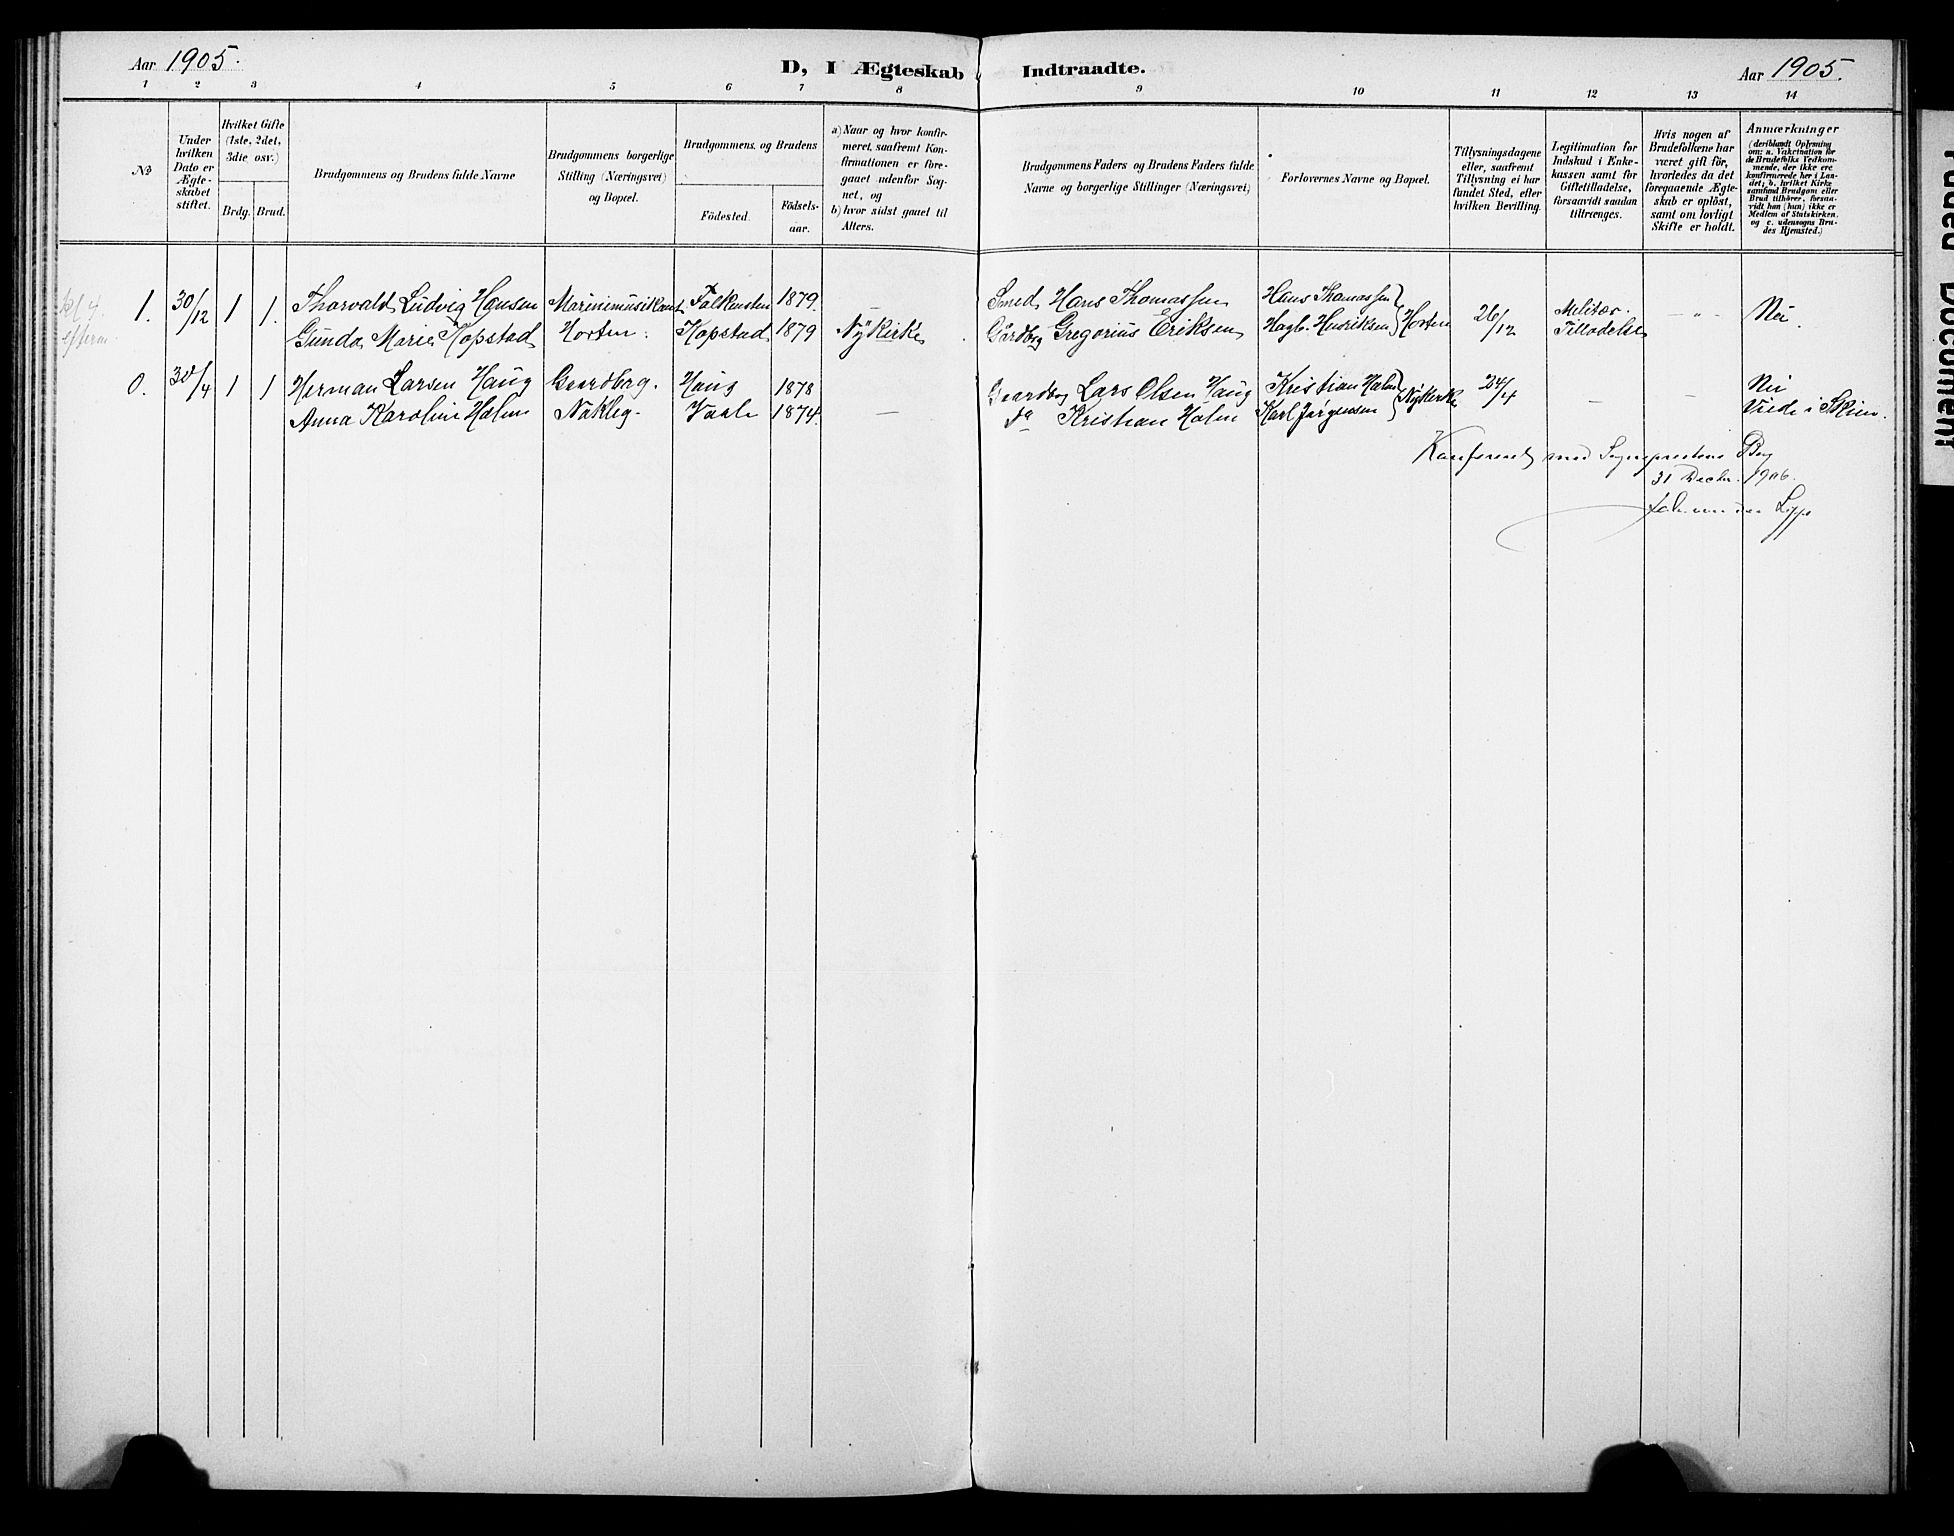 Aar 1905.
D, I Ægteskab Indtraadte.
Aar 1905.
1 2 3 4 5 6 7 8 9 10 11 12 13 14
№
Under hvilken Dato er Ægteskabet stiftet.
Hvilket Gifte (1ste, 2det, 3die osv.)
Brdg. Brud.
Brudgommens og Brudens fulde Navne
Brudgommens borgerlige Stilling (Næringsvei) og Bopæl.
Brudgommens og Brudens
Födested.
Födselsaar.
a) Naar og hvor konfirmeret, saafremt Konfirmationen er foregaaet udenfor Sognet, og
b) hvor sidst gaaet til Alters.
Brudgommens Faders og Brudens Faders fulde Navne og borgerlige Stillinger (Næringsvei)
Forlovernes Navne og Bopæl.
Tillysningsdagene eller, saafremt Tillysning ei har fundet Sted, efter hvilken Bevilling.
Legitimation for Indskud i Enkekassen samt for Giftetilladelse, forsaavidt saadan tiltrænges.
Hvis nogen af Brudefolkene har været gift för, hvorledes da det foregaaende Ægteskab er oplöst, samt om lovligt Skifte er holdt.
Anmærkninger (deriblandt Oplysning om: a. Vakcination for de Brudefolks Vedkommende, der ikke ere konfirmerede her i Landet; b. hvilket Kirkesamfund Brudgom eller Brud tilhörer, forsaavidt han (hun) ikke er Medlem af Statskirken, og c. udensogns Brudes Hjemsted.)
kl 4 efterm
1. 30/12 1 1. Thorvald Ludvig Hansen Marinemusikant Falkensten 1879. — Smed Hans Thomassen Hans Thomassen 26/12 Militær. — " — Nei
Gunda Marie Kopstad Horten. Kopstad 1879 Nykirke Gårdbrg Gregorius Eriksen Hagb. Henriksen } Horten Tilladelse
0. 30/4 1 1 Herman Larsen Haug Gaardbrg. Haug 1878 Gaardbrg Lars Olsen Haug Kristian Holm 24/4 — — Nei
Anna Karoline Holm Nakleg. Vaale 1874. — do Kristian Holm Karl Jørgensen } Nykirke Viede i Skien.
Konfereret med Sogneprestens Bog
31 Decbr. 1906.